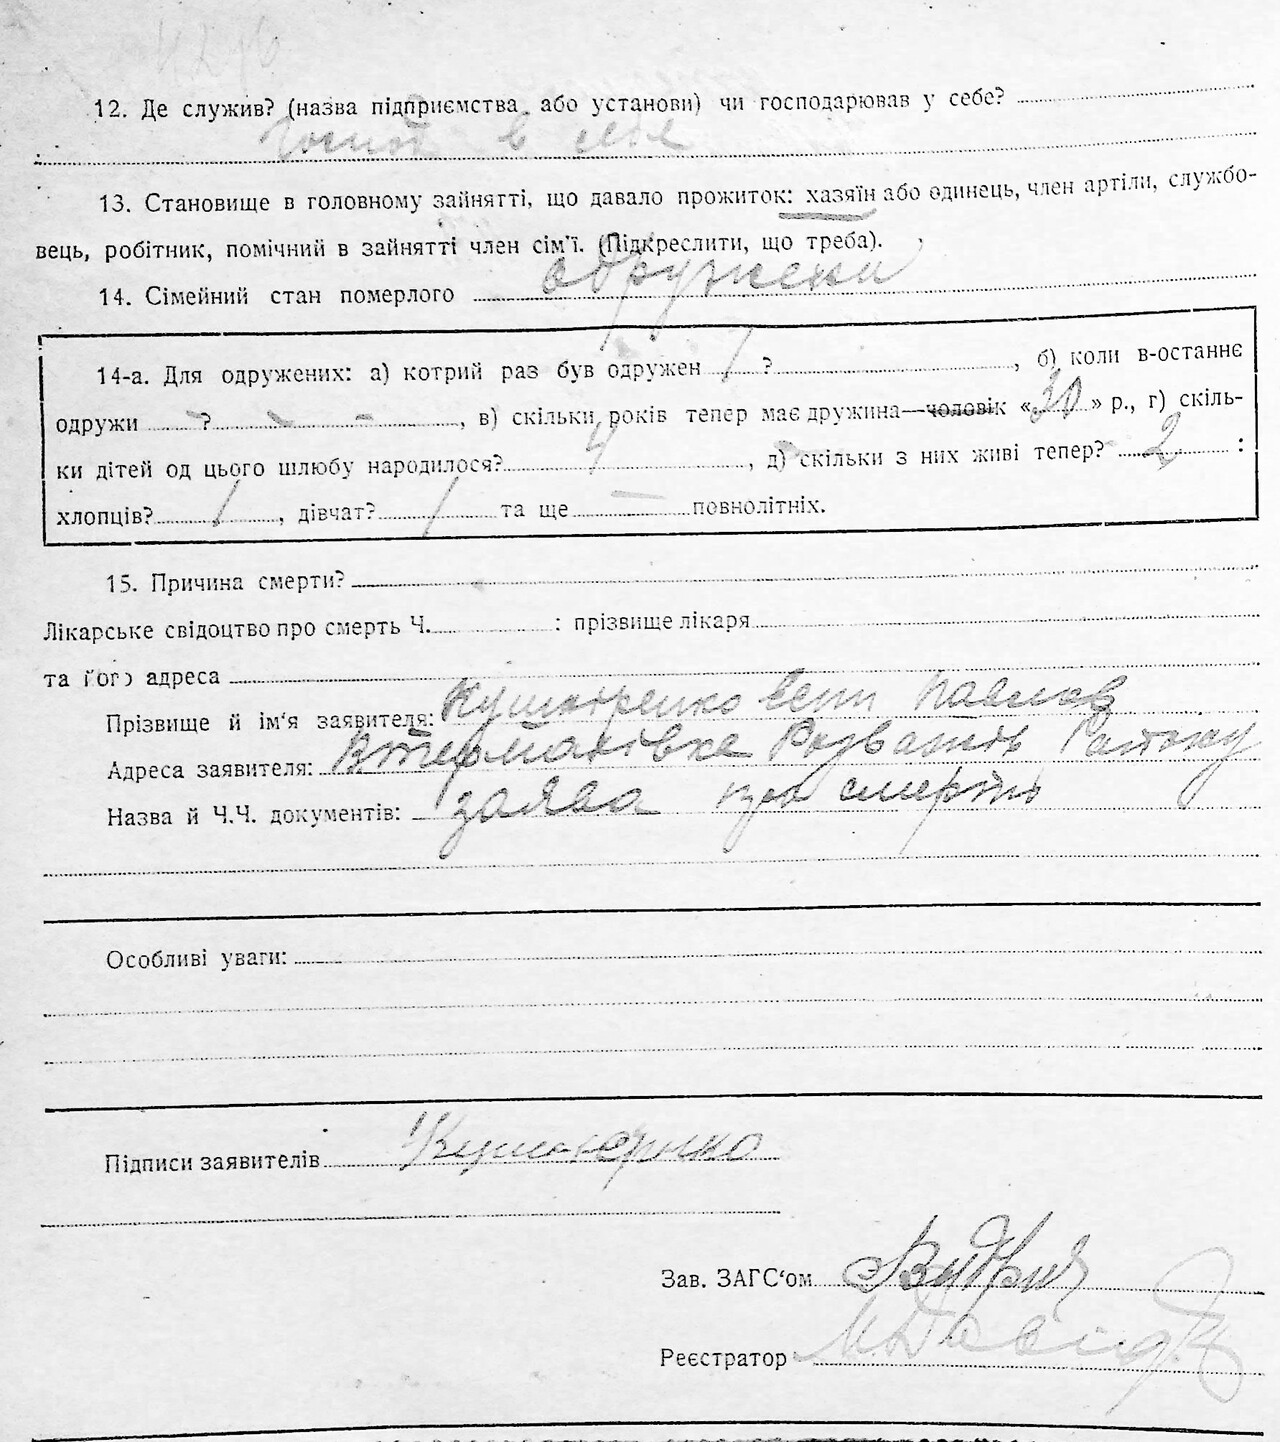 12. Де служив? (назва підприємства або установи) чи господарював у себе?
Господ в себе
13. Становище в головному зайнятті, що давало прожиток: хазяїн або одинець, член артіли, службо-
вець, робітник, помічний в зайнятті член сім'ї. (Підкреслити, що треба).
14. Сімейний стан померлого одружени
14-а. Для одружених: а) котрий раз був одружен 1 ? , б) коли в-останнє
одружи - ? - - , в) скільки років тепер має дружина—чоловік «30» р., г) скіль-
ки дітей од цього шлюбу народилося? 4 , д) скільки з них живі тепер? 2 :
хлопців? 1 , дівчат? 1 та ще — повнолітніх.
15. Причина смерти?
Лікарське свідоцтво про смерть Ч. : прізвище лікаря
та його адреса
Прізвище й ім'я заявителя: Павлов
Адреса заявителя: Розважів
Назва й Ч.Ч. документів: заява про смерть
Особливі уваги:
Підписи заявителів
Зав. ЗАГС'ом
Реєстратор